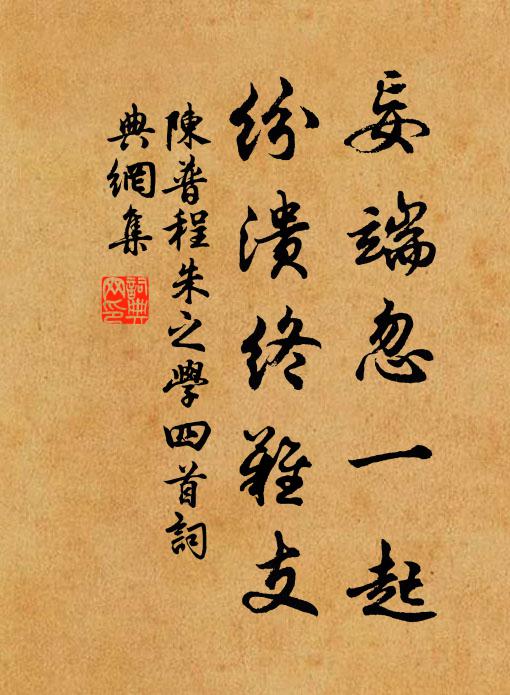 妄端忽一起
紛潰終難支
陳普程朱之學四首詞
典網集
詞典
網印